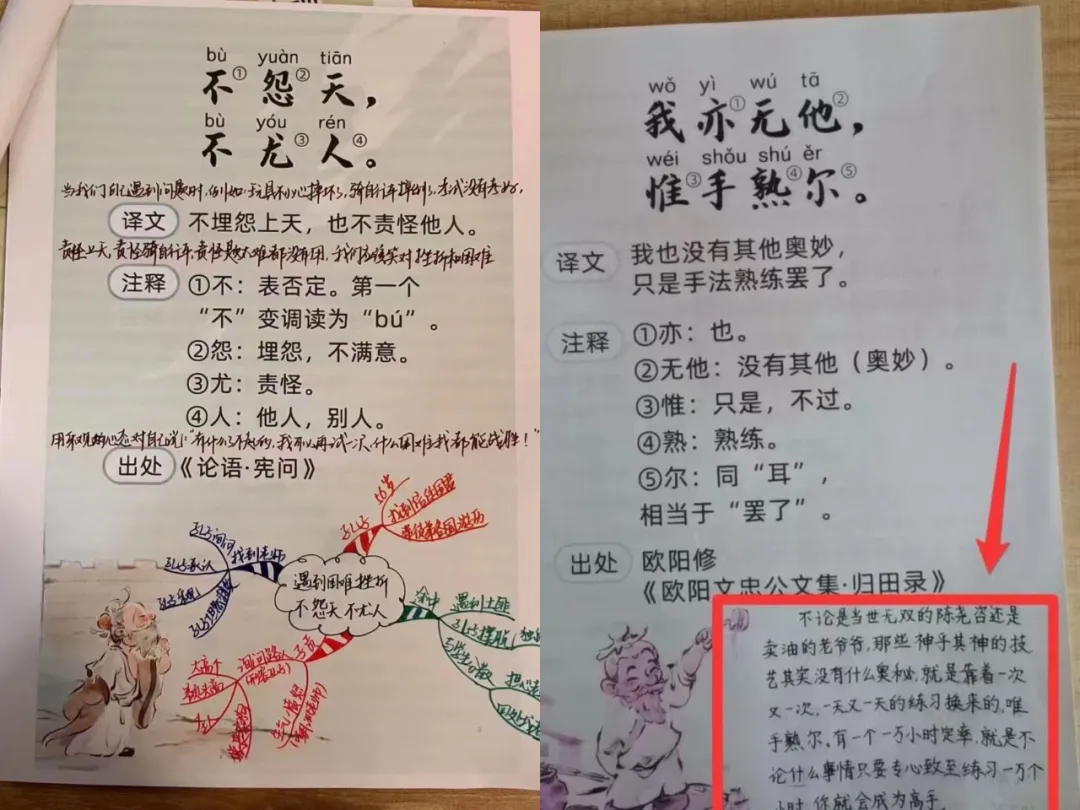 bù yuàn tiān
不①怨②天，
bù yóu rén
不尤③人④。
当我们自己遇到问题时，例如玩具不小心摔坏了，骑自行车摔倒了，考试没有考好，
译文 不埋怨上天，也不责怪他人。
责怪上天，责怪骑自行车，责怪题太难都没有用，我们应该笑对挫折和困难
注释 ①不：表否定。第一个
“不”变调读为“bú”。
②怨：埋怨，不满意。
③尤：责怪。
④人：他人，别人。
用乐观的心态对自己说：“有什么了不起的，我可以再试一次，什么困难我都能战胜！”
出处 《论语·宪问》
遇到困难挫折
不怨天不尤人
孔子
找到老师
孔子询问
孔子承认
途中
遇到土匪
子贡
询问路人
大高个
wǒ yì wú tā
我亦①无他②，
wéi shǒu shú ěr
惟③手熟④尔⑤。
译文 我也没有其他奥妙，
只是手法熟练罢了。
注释 ①亦：也。
②无他：没有其他（奥妙）。
③惟：只是，不过。
④熟：熟练。
⑤尔：同“耳”，
相当于“罢了”。
出处 欧阳修
《欧阳文忠公文集·归田录》
不论是当世无双的陈尧咨还是
卖油的老爷爷，那些神乎其神的技
艺其实没有什么奥秘，就是靠着一次
又一次，一天又一天的练习换来的，唯
手熟尔。有一个一万小时定率，就是不
论什么事情只要专心致至练习一万个
小时，你就会成为高手。